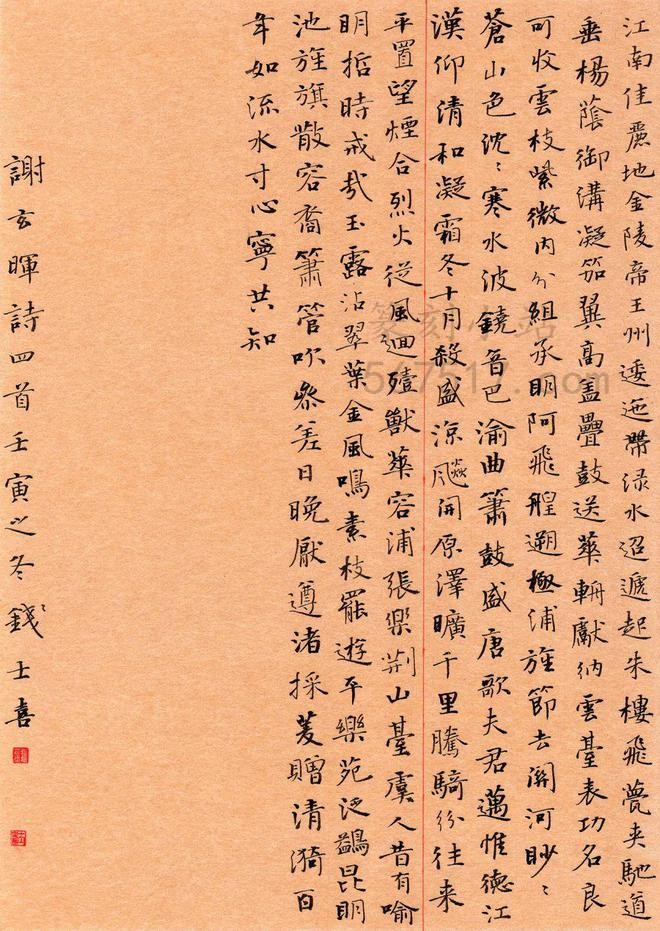 江南佳麗地金陵帝王州逶迤帶渌水迢遞起朱樓飛甍夾馳道
垂楊蔭御溝凝笳翼高盖疊鼓送華輈獻納雲臺表功名良
可收雲枝紫微內分組承明阿飛艎遡極浦旌節去關河眇〻
蒼山色沈〻寒水波鐃音巴渝曲簫鼓盛唐歌夫君邁惟德江
漢仰清和凝霜冬十月殺盛涼飈開原澤曠千里騰騎紛往来
平置望煙合烈火從風迴殪獸華容浦張樂荆山臺虞人昔有喻
明哲時戒哉玉露沾翠葉金風鳴素枝罷遊平樂苑泛鷁昆明
池旌旗散容裔簫管吹參差日晚厭遵渚採菱贈清漪百
年如流水寸心寧共知
謝玄暉詩四首壬寅之冬錢士喜
篆刻小站
547517.com